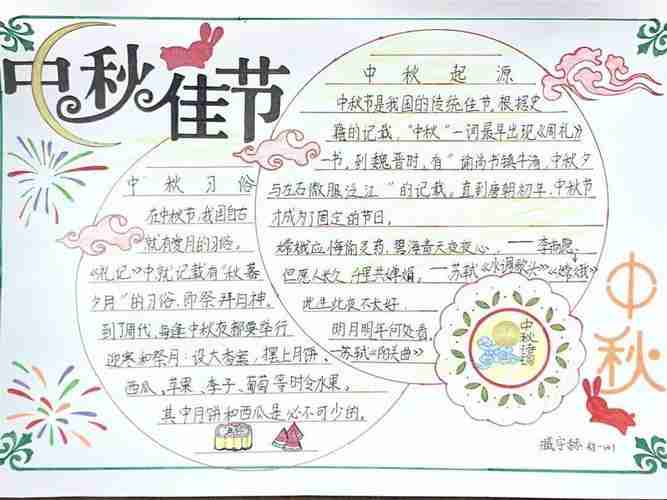 中秋佳节
中秋起源
中秋节是我国的传统佳节,根据史
籍的记载,“中秋”一词最早出现《周礼》
一书,到魏晋时,有“谕尚书镇牛渚,中秋夕
与左右微服泛江”的记载。直到唐朝初年,中秋节
才成为了固定的节日。
嫦娥应悔偷灵药,碧海青天夜夜心。——李商隐
《嫦娥》
但愿人长久,千里共婵娟。——苏轼《水调歌头》
此生此夜不长好
明月明年何处看。
——苏轼《阳关曲》
中秋习俗
在中秋节,我国自古
就有赏月的习俗。
《礼记》中就记载有“秋暮
夕月”的习俗,即祭拜月神。
到了周代,每逢中秋夜都要举行
迎寒和祭月。设大香案,摆上月饼、
西瓜、苹果、李子、葡萄等时令水果。
其中月饼和西瓜是必不可少的。
中秋
中秋